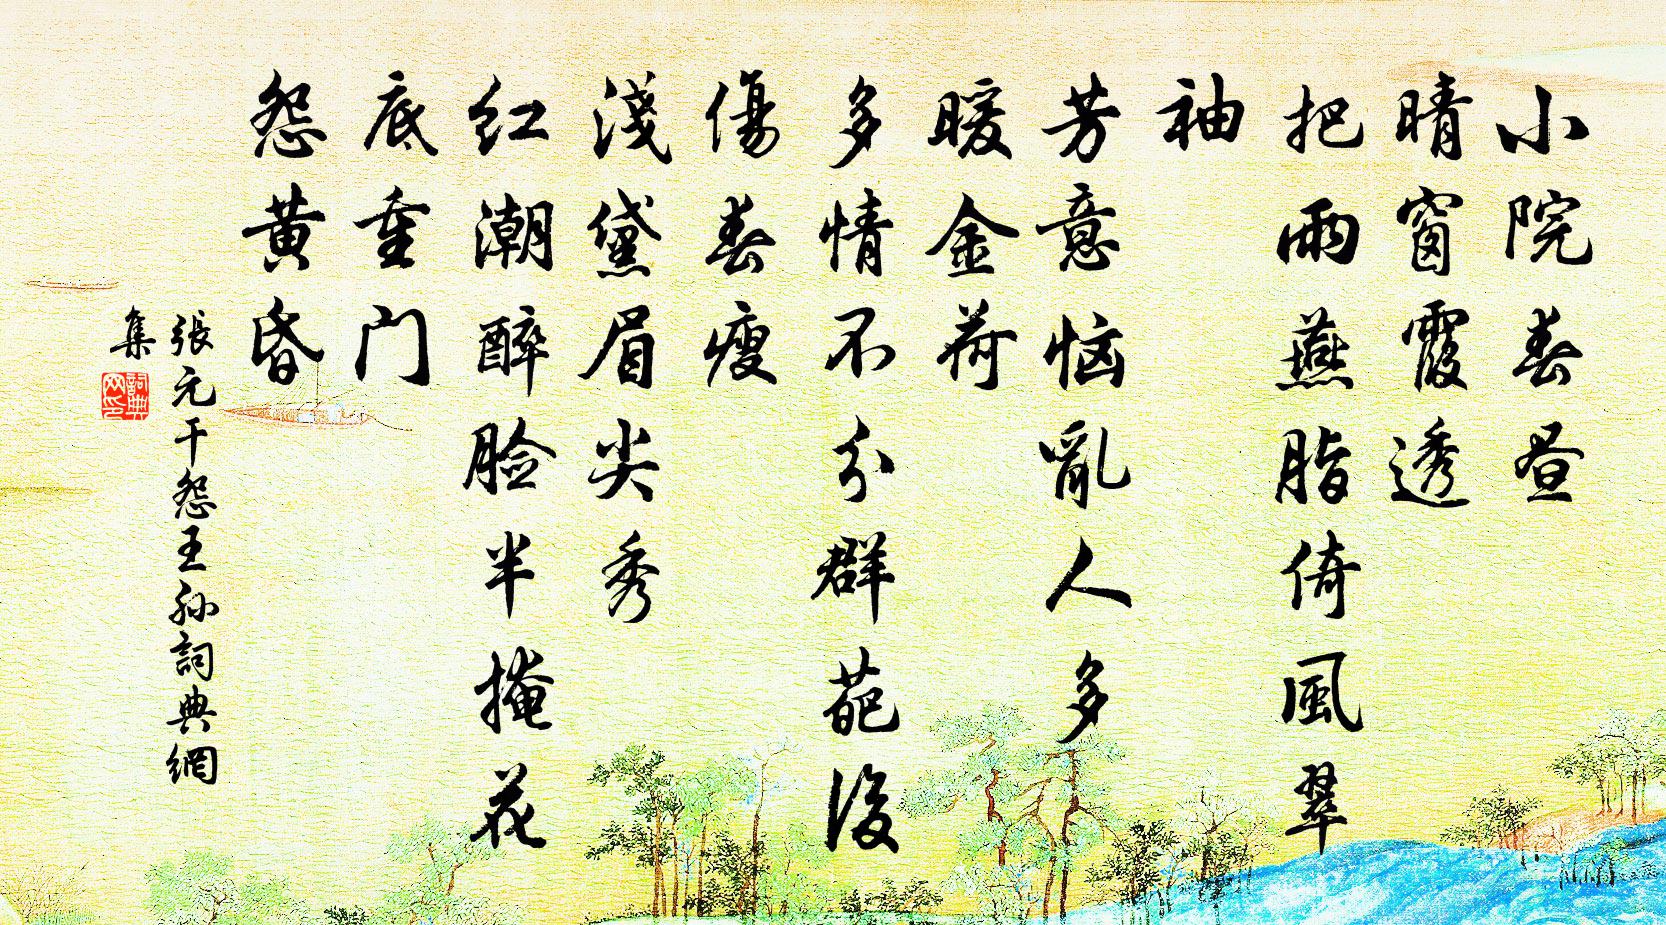 小院春昼
晴窗霞透
把雨燕脂倚風翠
袖
芳意恼亂人多
暖金荷
多情不分群葩後
傷春瘦
淺黛眉尖秀
红潮醉脸半掩花
底重门
怨黄昏
張元干怨王孫詞典網
集
詞典网印